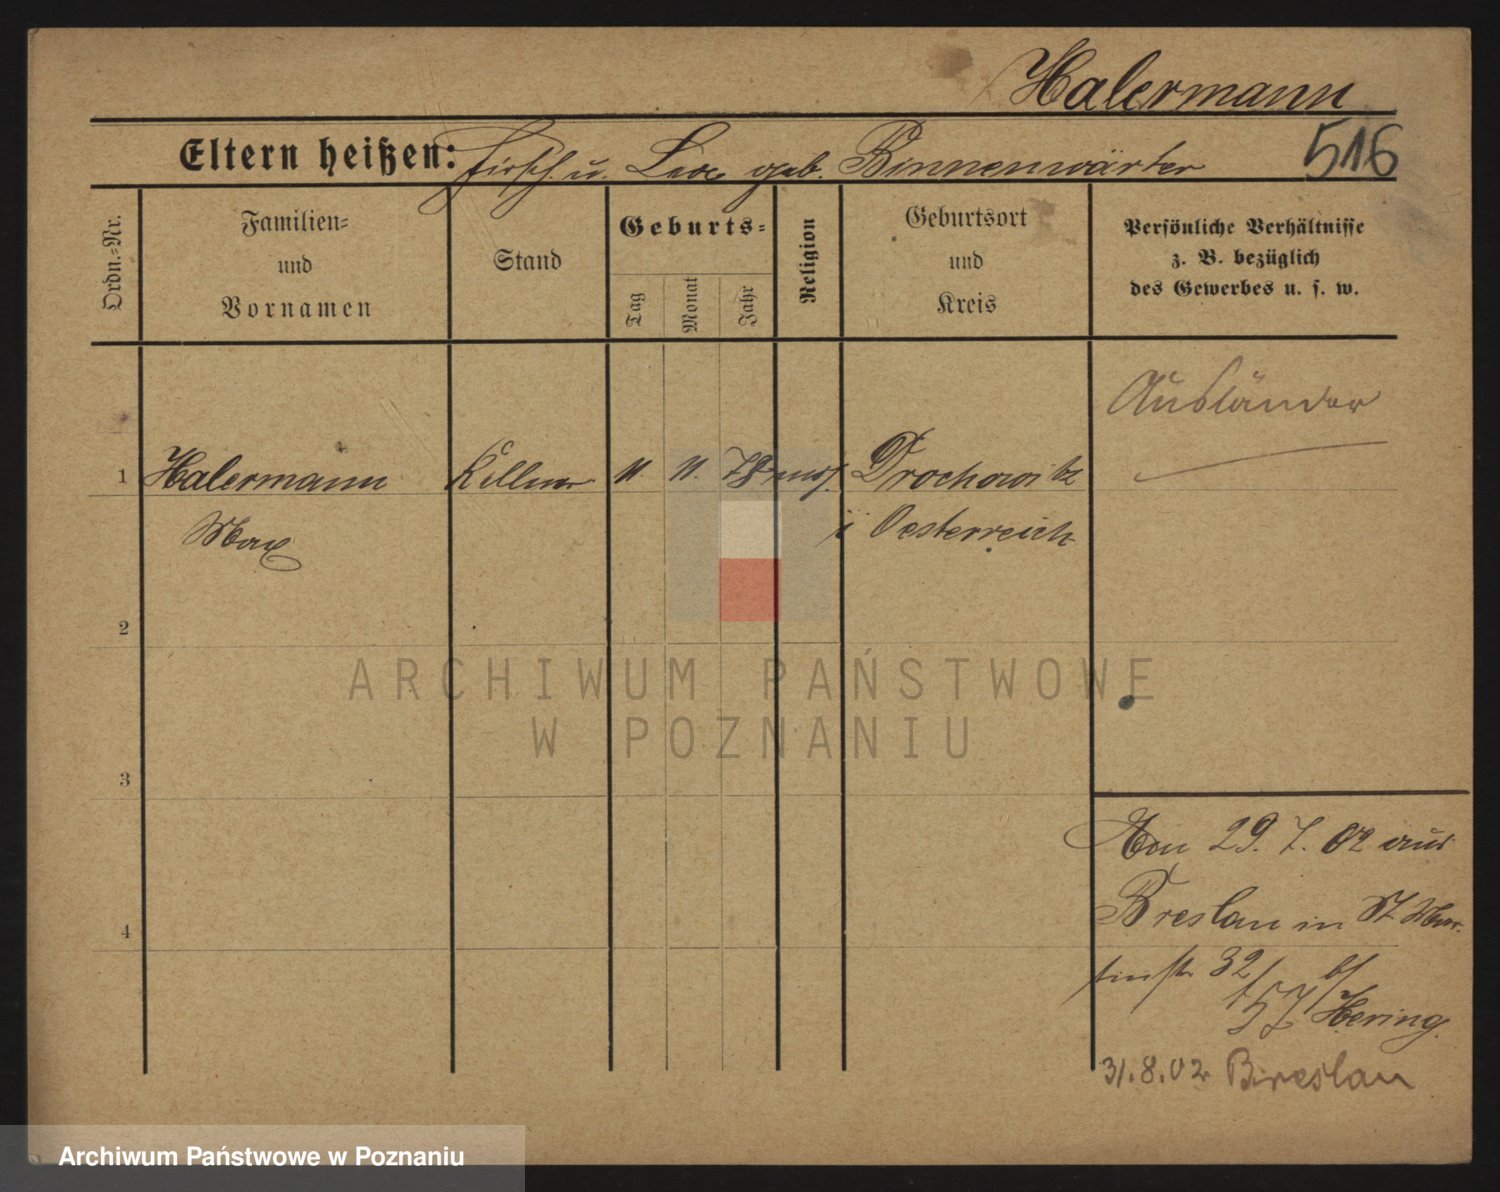 Halermann
516
Eltern heißen: Hirsch u. Lea geb. Binnenwärter
Ordn.-Nr.
Familien-
und
Vornamen
Stand
Geburts-
Tag
Monat
Jahr
Religion
Geburtsort
und
Kreis
Persönliche Verhältnisse
z. B. bezüglich
des Gewerbes u. s. w.
Ausländer
1 Halermann Kellner 11. 11. 78 mos. Drochowitz
Max i Oesterreich
2
3
4
Von 29. 7. 02 aus
Breslau in St. Mar-
tinstr 32/
57 b/ Hering
31.8.02 Breslau
ARCHIWUM PAŃSTWOWE
W POZNANIU
Archiwum Państwowe w Poznaniu